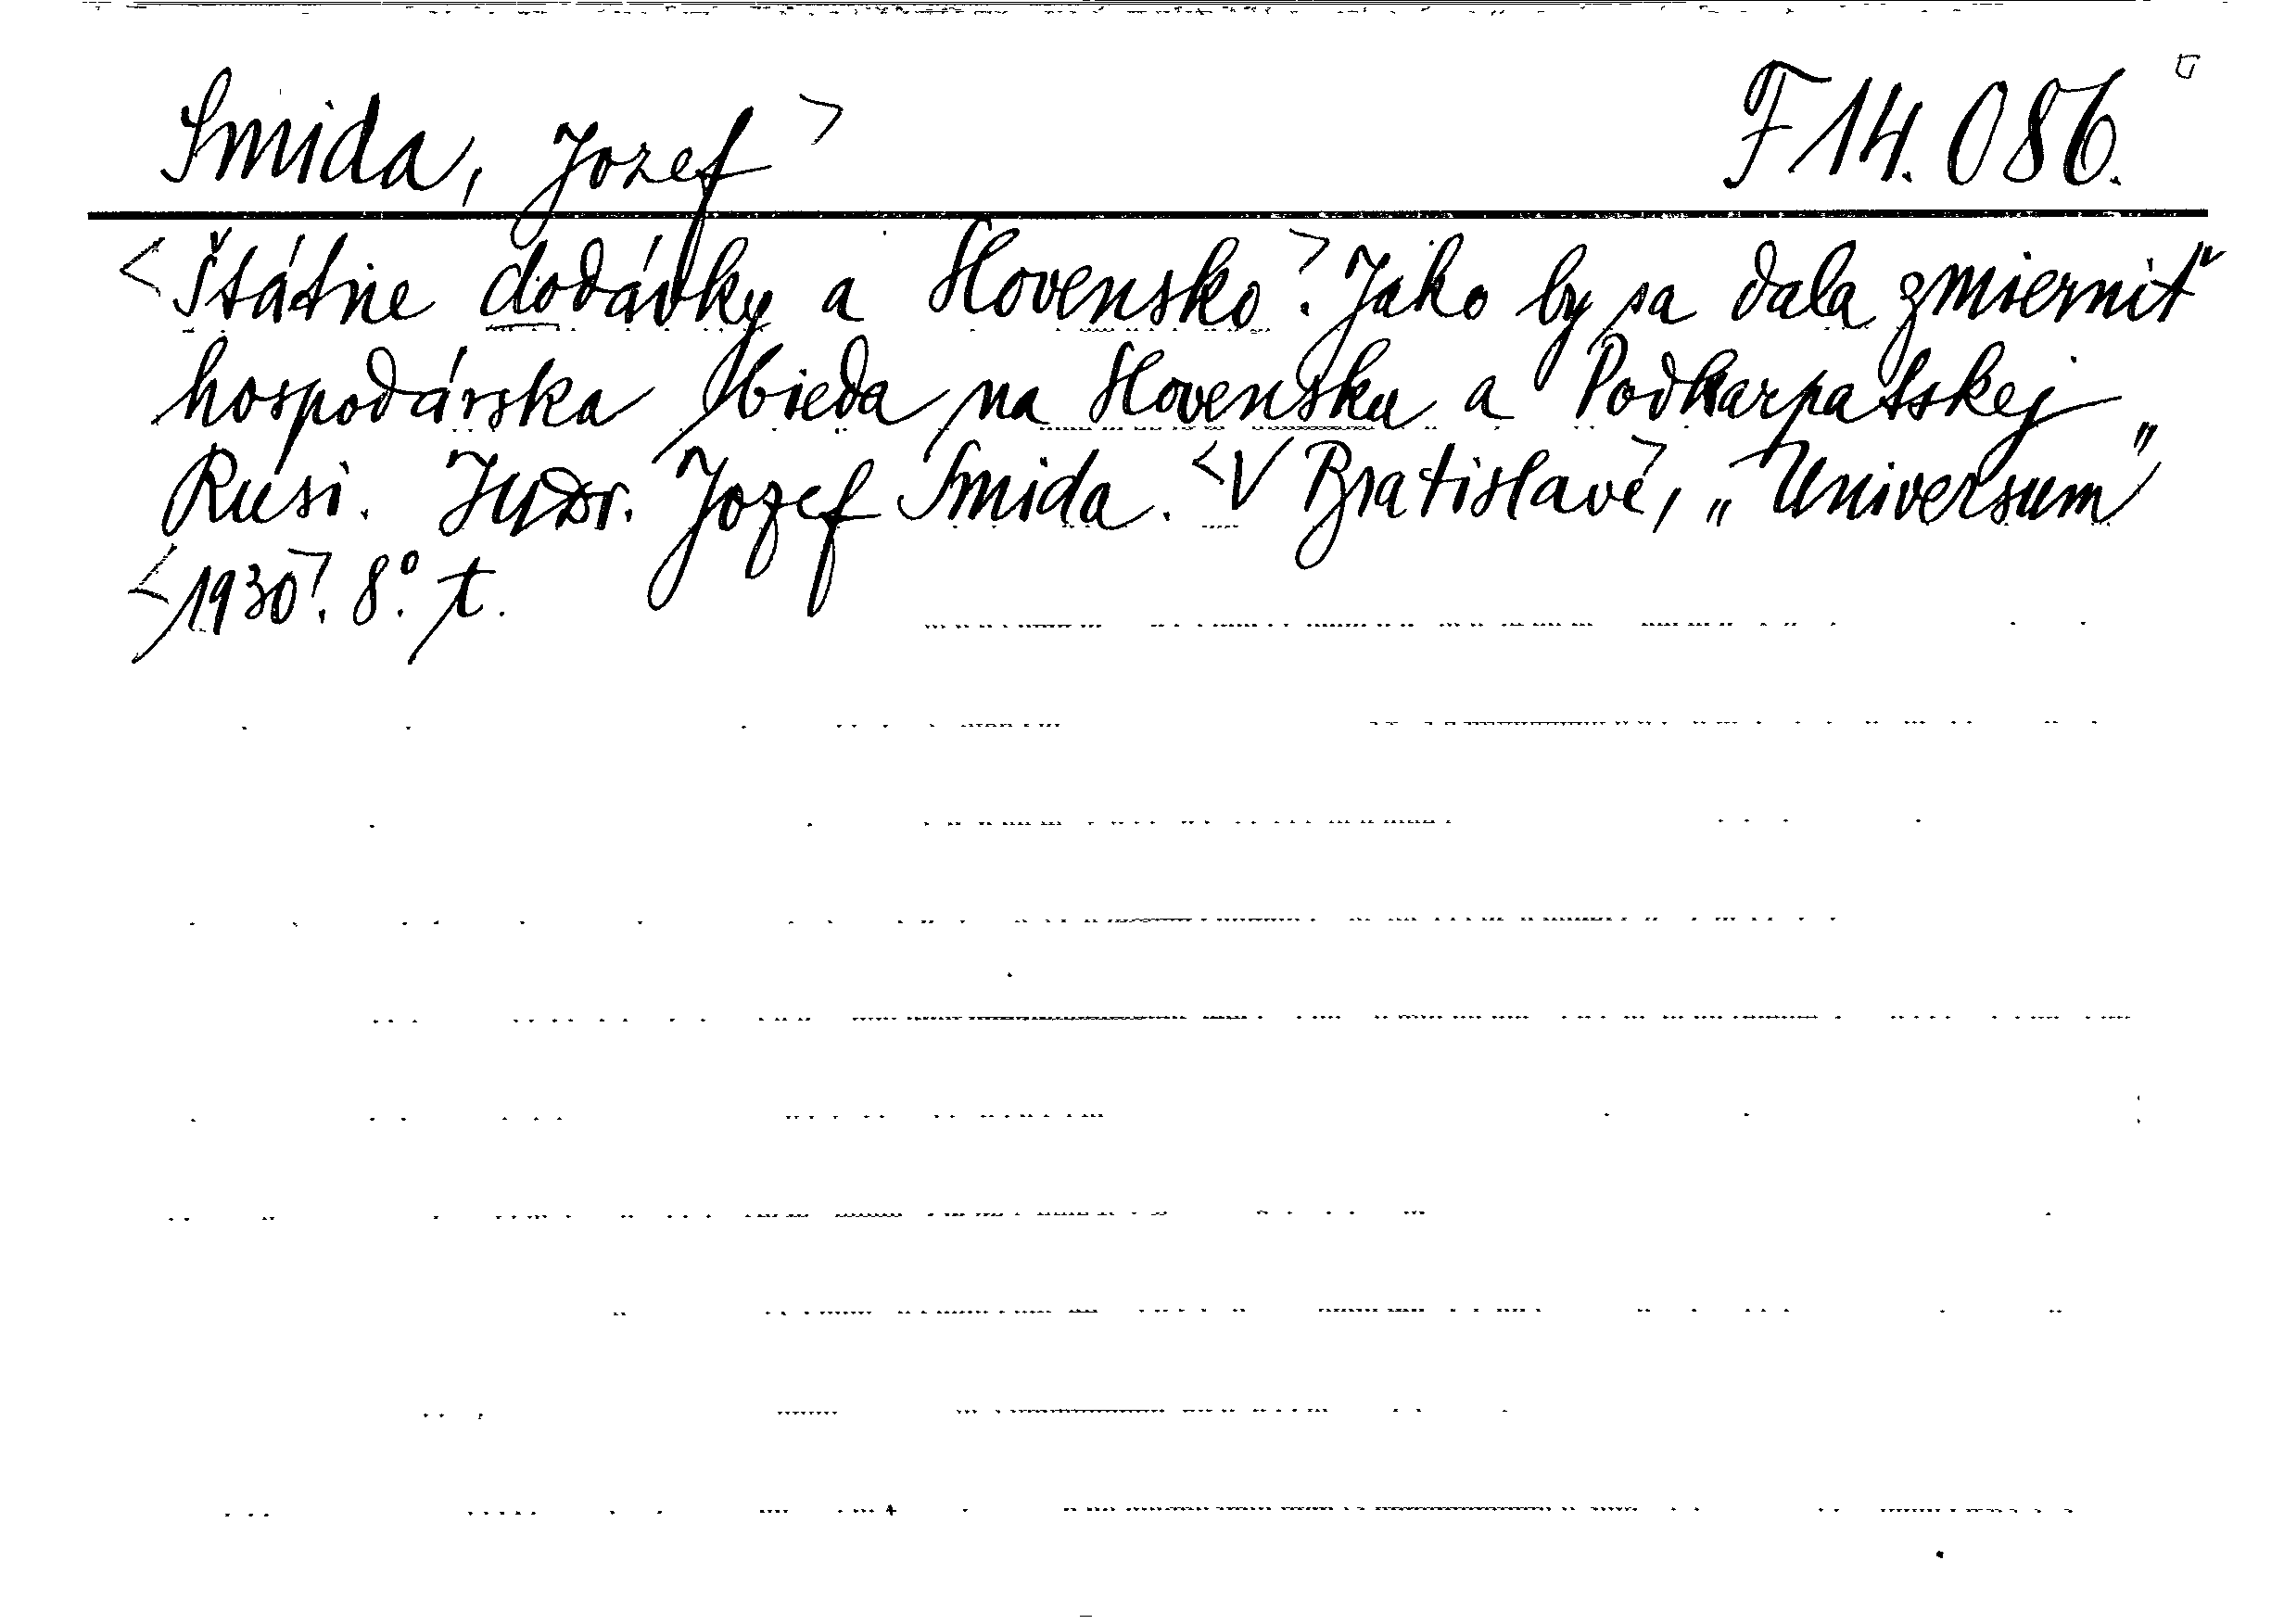 Smida, Jozef > F 14.086.
<Štátne dodávky a Slovensko>. Jako by sa dala zmierniť
hospodárska bieda na Slovensku a Podkarpatskej
Rusi. JUDr. Jozef Smida. <V Bratislavě>, „Universum"
<1930>. 8°. t.